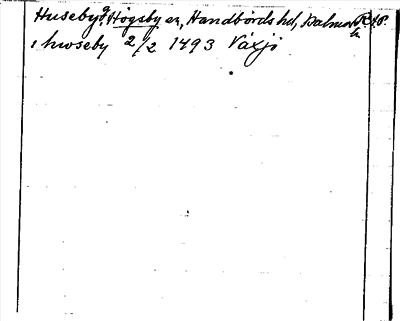 Huseby g, Högsby sn, Handbörds hd, Kalmar l. RAP.
i hwseby 2/2 1493 Växjö